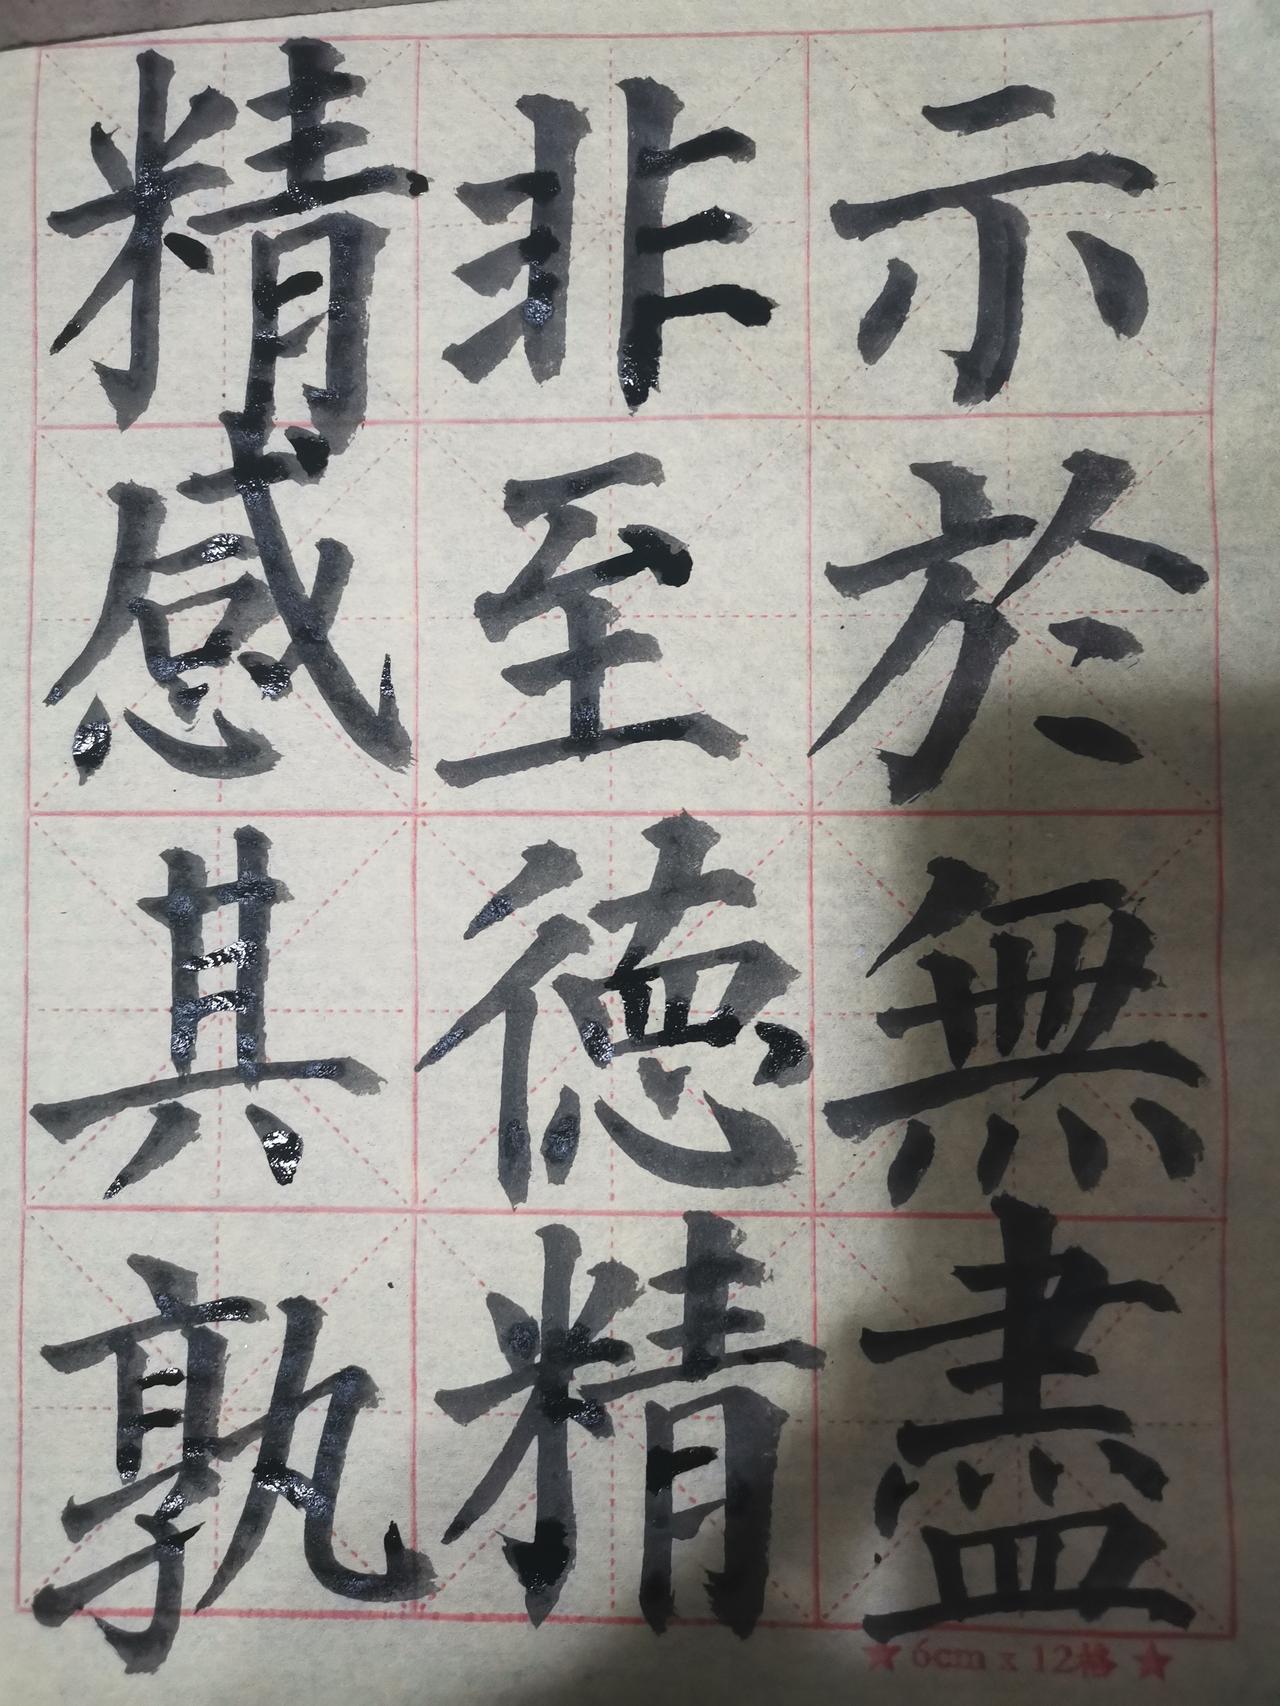 示於無盡
非至德精
精感其孰
★6cm x 12格★